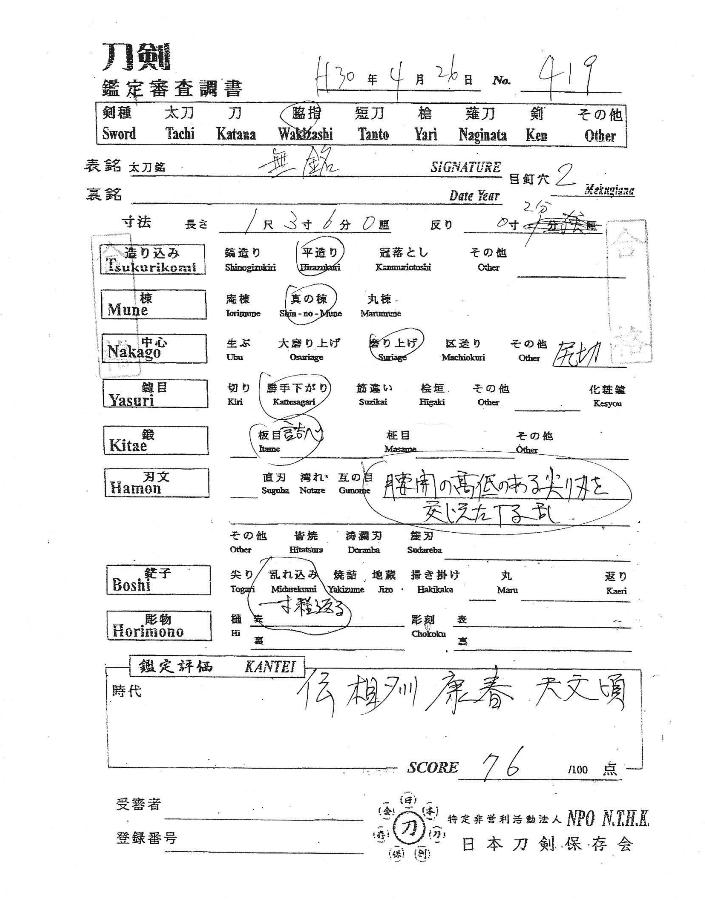 刀剣
鑑定審査調書
H30 年 4 月 26 日 No. 419
剣種 太刀 刀 脇指 短刀 槍 薙刀 剣 その他
Sword Tachi Katana Wakizashi Tanto Yari Naginata Ken Other
表銘 太刀銘 無銘 SIGNATURE 目釘穴 2 Mekugiana
裏銘 Date Year
寸法 長さ 1 尺 3 寸 6 分 0 厘 反り 0 寸 2分
合格
造り込み 鎬造り 平造り 冠落とし その他
Tsukurikomi Shinogizukiri Hirazukuri Kanmuriotoshi Other
棟 庵棟 真の棟 丸棟
Mune Iorimune Shin-no-Mune Marumune
中心 生ぶ 大磨り上げ 磨り上げ 区送り その他 尻切
Nakago Ubu Osuriage Suriage Machiokuri Other
鑢目 切り 勝手下がり 筋違い 桧垣 その他 化粧鑢
Yasuri Kiri Kattesagari Suzikai Higaki Other Kesyou
鍛 板目 柾目 その他
Kitae Itame Masame Other
刃文 直刃 湾れ 互の目 腰開の高低のある尖り刃を
Hamon Suguba Notare Gunome 交じえた
その他 皆焼 濤瀾刃 簾刃
Other Hitatsura Doranba Sudareba
鋩子 尖り 乱れ込み 焼詰 地蔵 掃き掛け 丸 返り
Boshi Togari Midarekomi Yakizume Jizo Hakikaka Maru Kaeri
一寸程返る
彫物 樋 表 彫刻 表
Horimono Hi 裏 Chokoku 裏
鑑定評価 KANTEI
時代 伝 相州 康春 天文頃
SCORE 76 /100 点
受審者
登録番号
刀
特定非営利活動法人 NPO N.T.H.K.
日本刀剣保存会